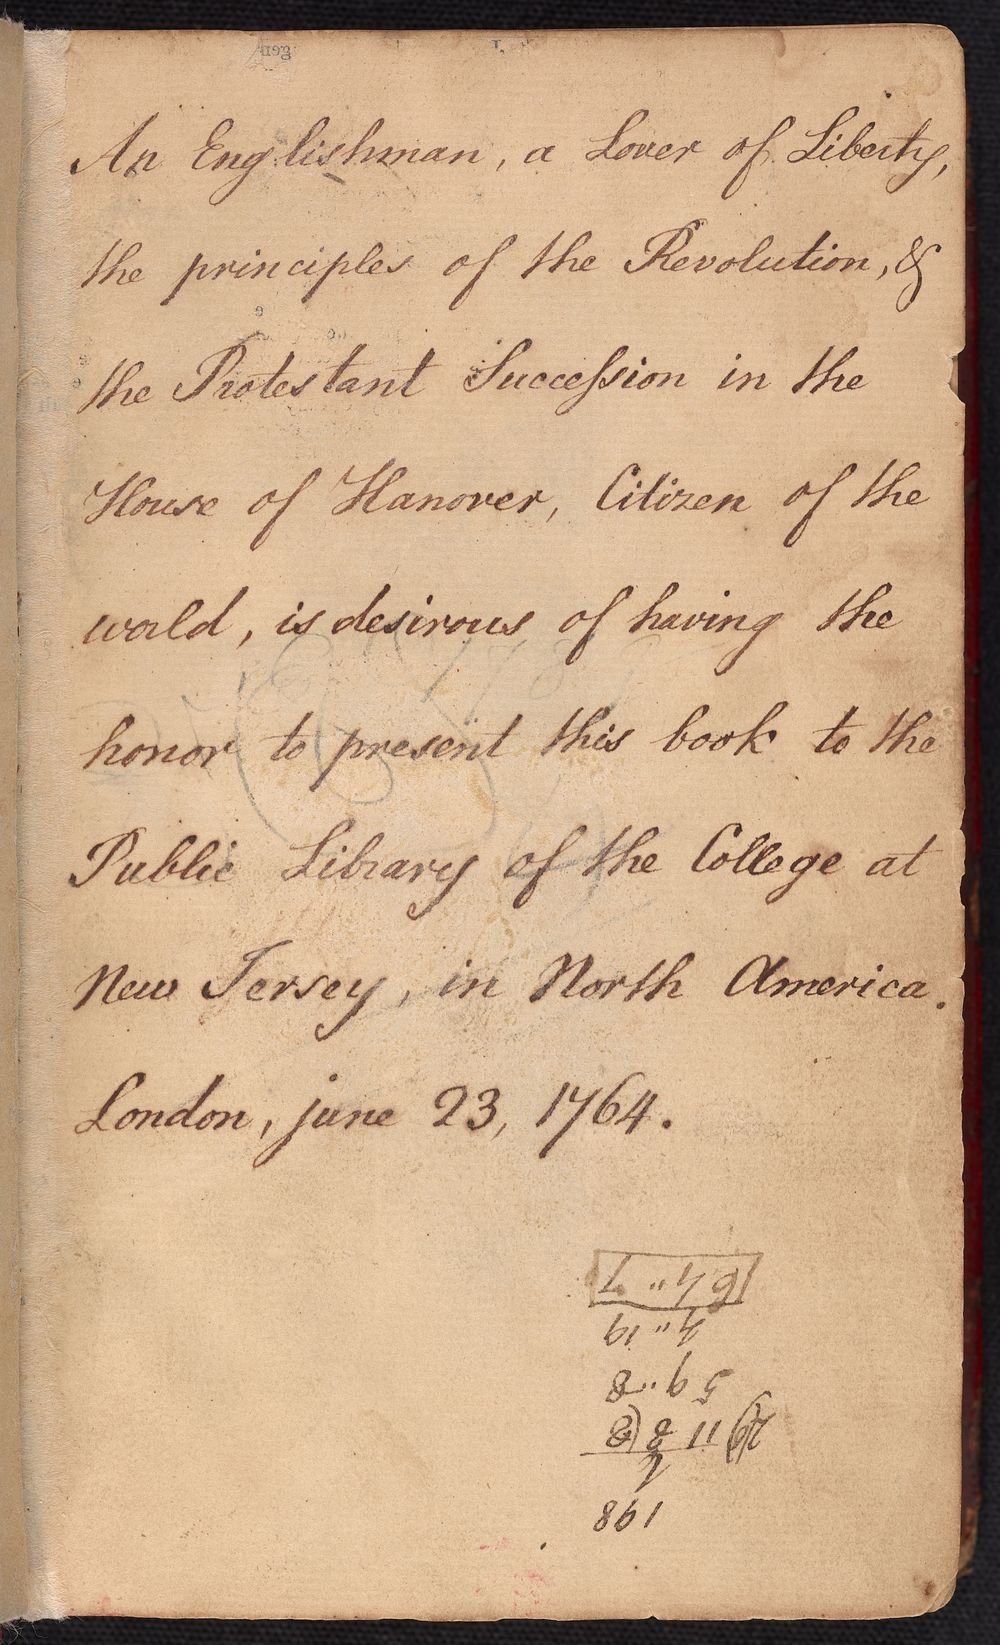 An Englishman, a Lover of Liberty,
the principles of the Revolution, &
the Protestant Succeſsion in the
House of Hanover, Citizen of the
world, is desirous of having the
honor to present this book to the
Public Library of the College at
New Jersey, in North America.
London, june 23, 1764.
198